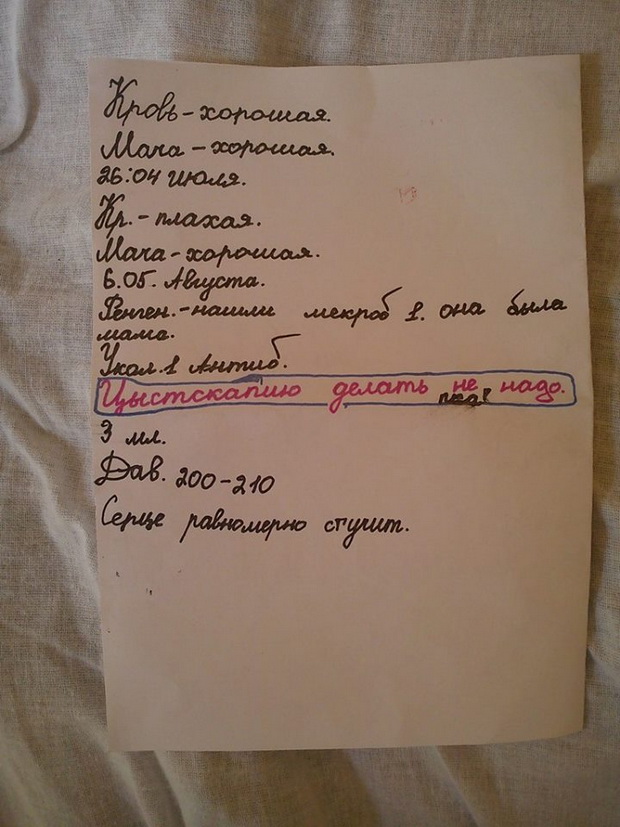 Кровь-хорошая.
Мача-хорошая.
26:04 июля.
Кр.-плахая.
Мача-хорошая.
6.05. Августа.
Фенген.-нашли мекроб 1. она была
мама.
Укол.1 Антиб.
Цыстскапию делать не надо.
пока!
3 мл.
Дав. 200-210
Серце равномерно стучит.